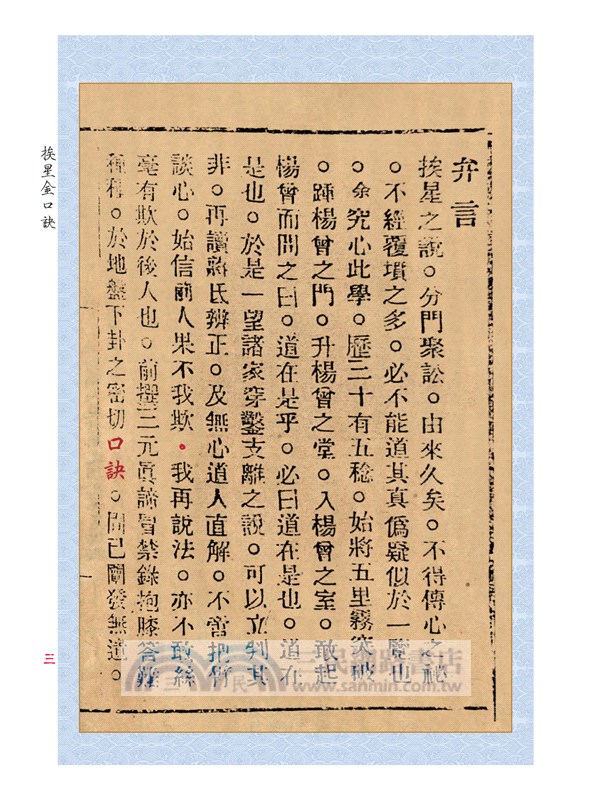 弁言
挨星之說。分門聚訟。由來久矣。不得傳心之祕
。不經覆墳之多。必不能道其真僞疑似於一覽也
。余究心此學。歷三十有五稔。始將五里霧突破
。踵楊曾之門。升楊曾之堂。入楊曾之室。敢起
楊曾而問之曰。道在是乎。必曰道在是也。道在
是也。於是一望諸家穿鑿支離之說。可以立判其
非。再讀蔣氏辨正。及無心道人直解。不啻把臂
談心。始信前人果不我欺。我再說法。亦不敢絲
毫有欺於後人也。前撰三元眞諦冒禁錄抱膝答難
種種。於地盤下卦之密切口訣。間已闡發無遺。
挨星金口訣
三
三民網路書店
www.sanmin.com.tw